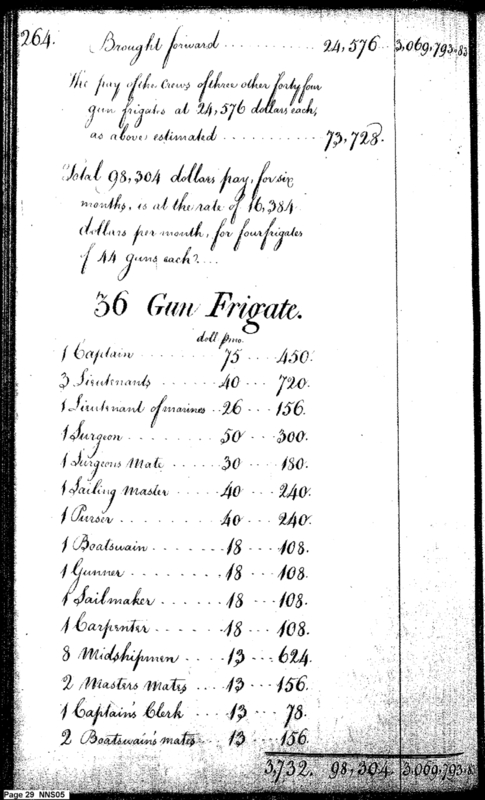 264.
Brought forward . . . . . . . . . . . . 24,576 3,069,793.83
The pay of the Crews of three other forty four
gun frigates at 24,576 dollars each,
as above estimated . . . . . . . . . . . . 73,728.
Total 98,304 dollars pay, for six
months, is at the rate of 16,384
dollars per month, for four frigates
of 44 guns each. . . .
36 Gun Frigate.
doll pr mo.
1 Captain . . . . . . . . . 75 . . . 450.
3 Lieutenants . . . . . . 40 . . . 720.
1 Lieutenant of marines . . 26 . . . 156.
1 Surgeon . . . . . . . . 50 . . . 300.
1 Surgeons Mate . . . . . 30 . . . 180.
1 Sailing Master . . . . . 40 . . . 240.
1 Purser . . . . . . . . . 40 . . . 240.
1 Boatswain . . . . . . . 18 . . . 108.
1 Gunner . . . . . . . . 18 . . . 108.
1 Sailmaker . . . . . . . 18 . . . 108.
1 Carpenter . . . . . . . 18 . . . 108.
8 Midshipmen . . . . . 13 . . . 624.
2 Masters Mates . . . . 13 . . . 156.
1 Captain's Clerk . . . . 13 . . . 78.
2 Boatswain's mates . . . 13 . . . 156.
3,732. 98,304. 3,069,793.8
Page 29 NNS05